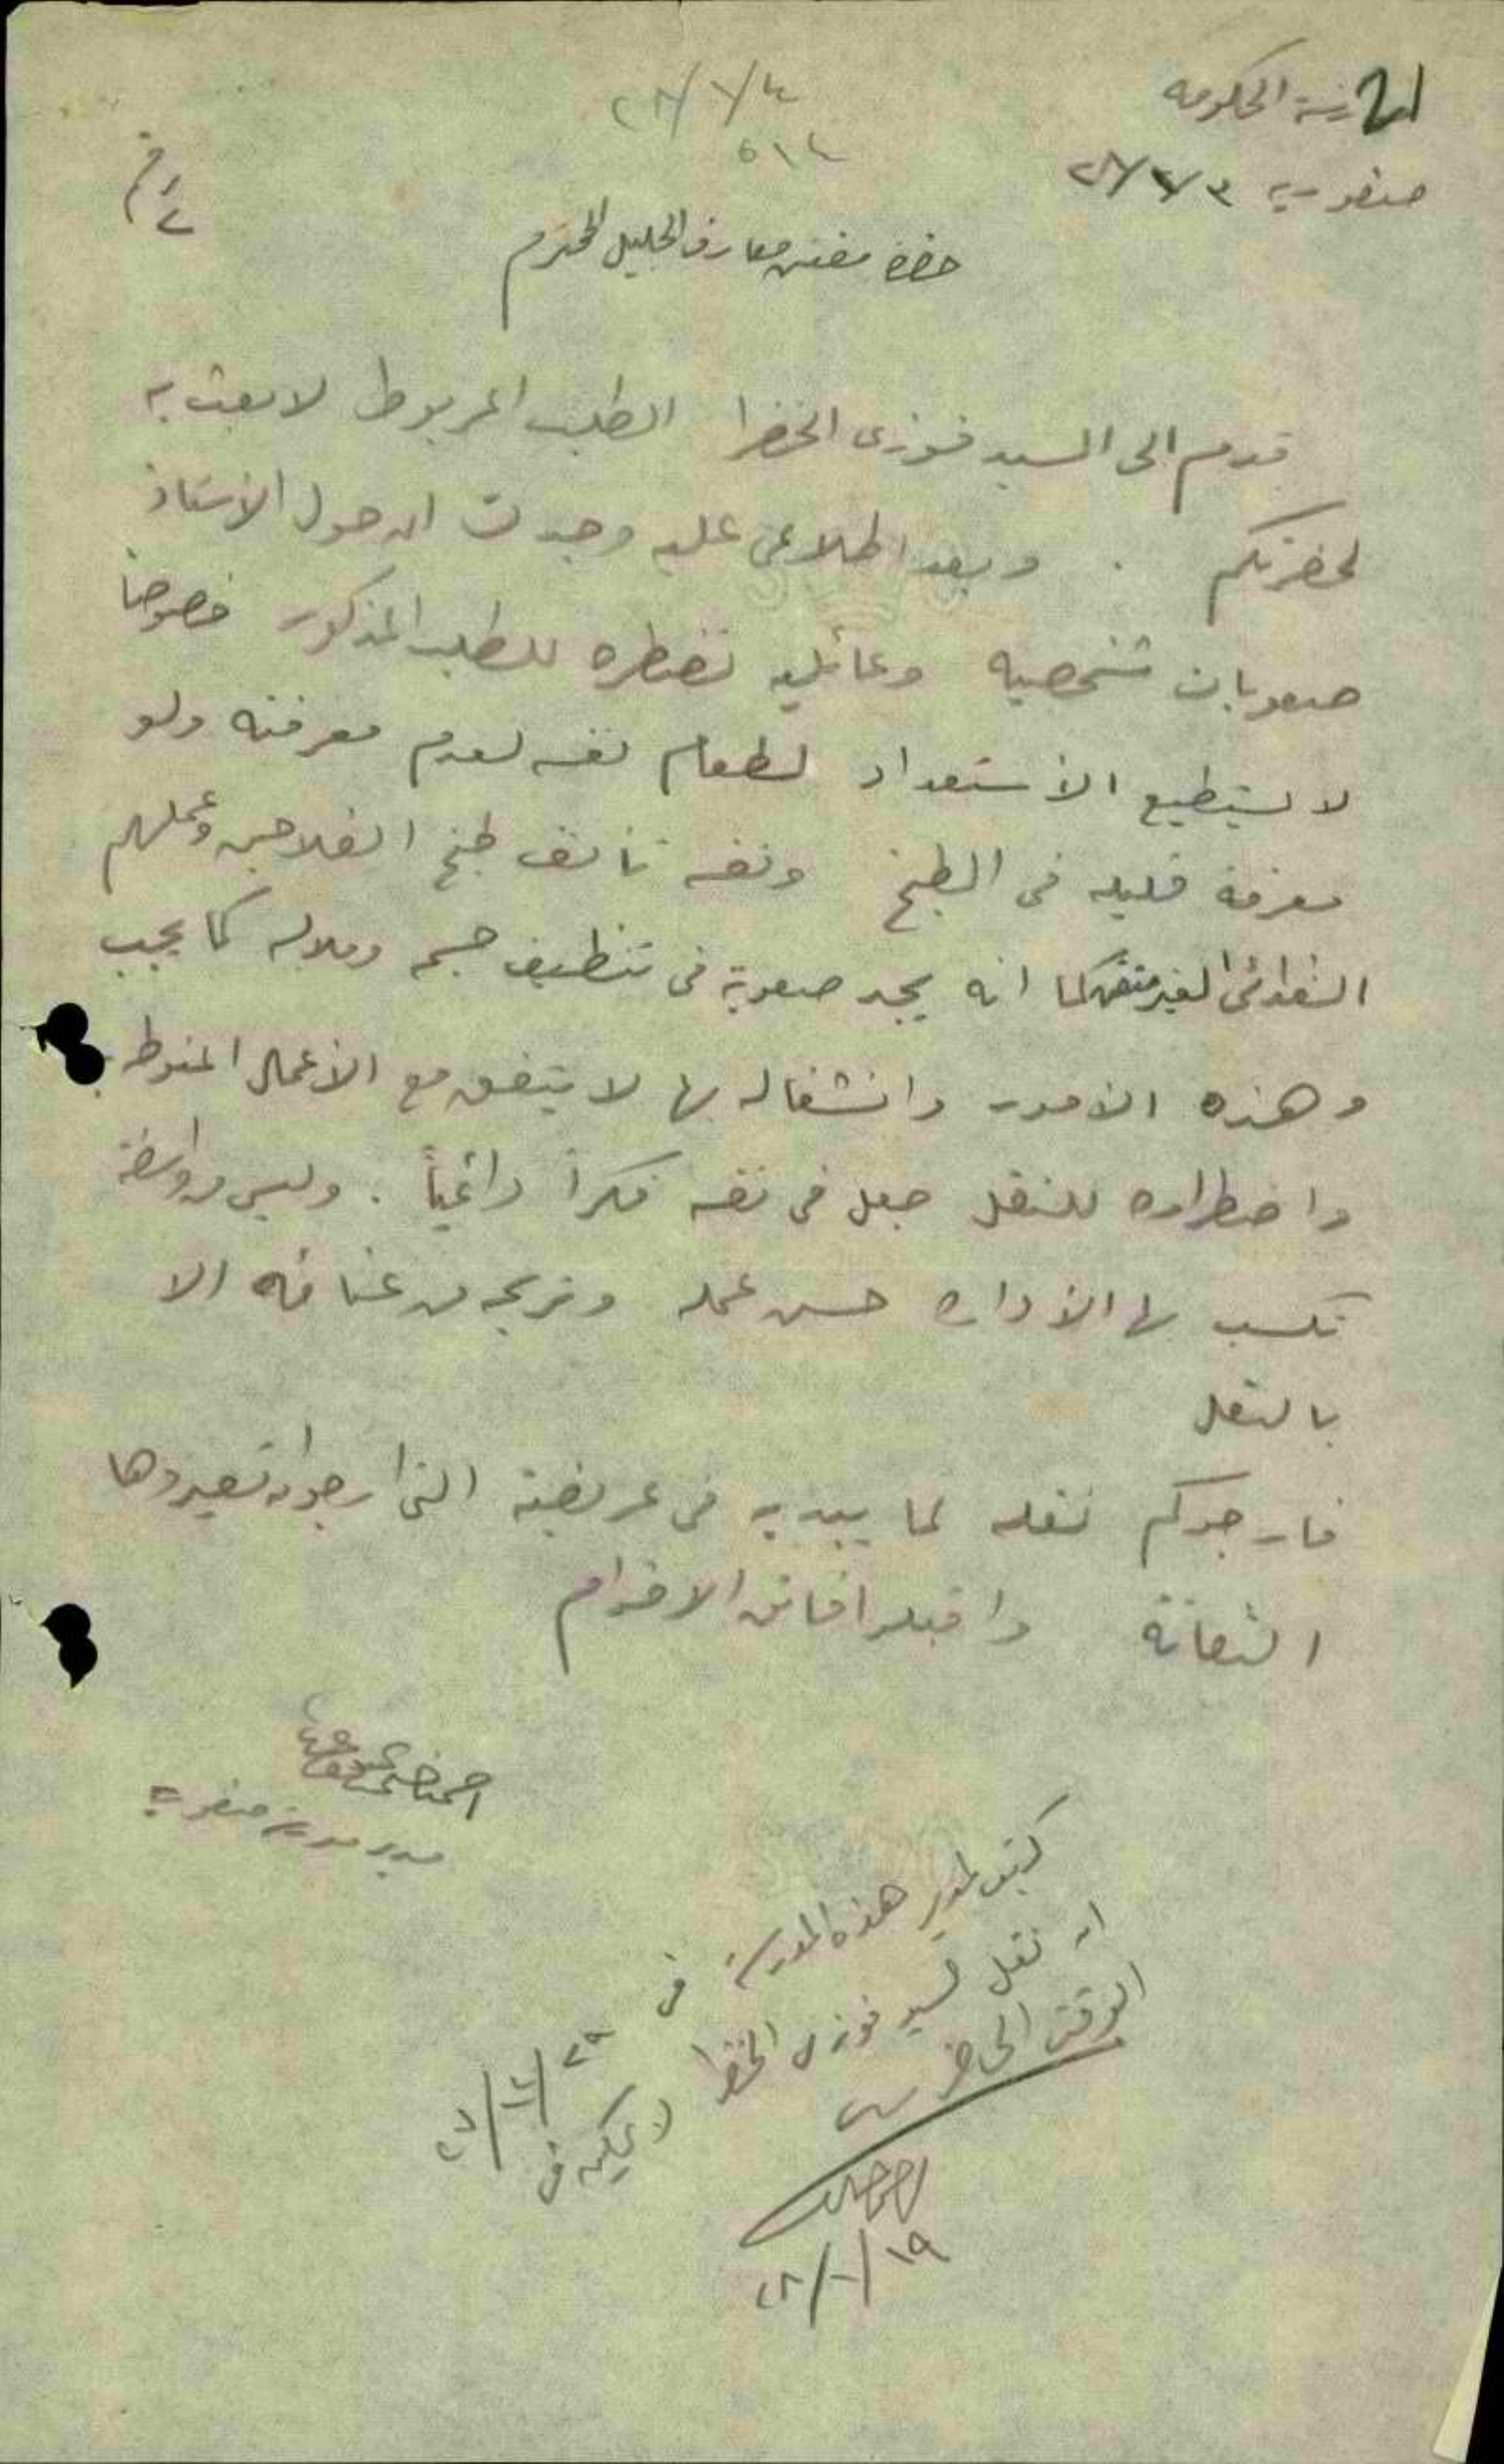 مدرسة الحكومه
صفوريه ٢٨/١/٣
٢٨/١/٤
٥١٤
حضرة مفتش معارف الجليل المحترم
قدم الى السيد فوزى الخضرا الطلب المربوط لابعث به
لحضرتكم . وبعد اطلاعى عليه وجدت ان حول الاستاذ
صعوبات شخصيه وعائليه تضطره للطلب المذكور خصوصاً
لا يستطيع الأستعداد لطعام نفسه لعدم معرفته ولو
معرفة قليله فى الطبخ ونفسه تأنف طبخ الفلاحين وعملهم
الغير متقن كما انه يجد صعوبة فى تنظيف جسمه وملابسه كما يجب
وهذه الامور وانشغاله بها لا يتفق مع الأعمال المنوطه به
واضطراره للنقل جعل فى نفسه فكراً دائمياً . وليس من واسطة
تكسب لها الأداره حسن عمله وتريحه من عنائه الا
بالنقل
فارجوكم نقله لما يبديه فى عريضته التى ارجو ان تعيروها
التفاتة واقبلوا فائق الاحترام
مدير مدرسة صفوريه
كتبت لمدير هذه المدرسة فى ٢٧/١٢/٢٩
ان نقل السيد فوزى الخضرا لا يمكن فى
الوقت الحاضر
٢٨/١/١٩